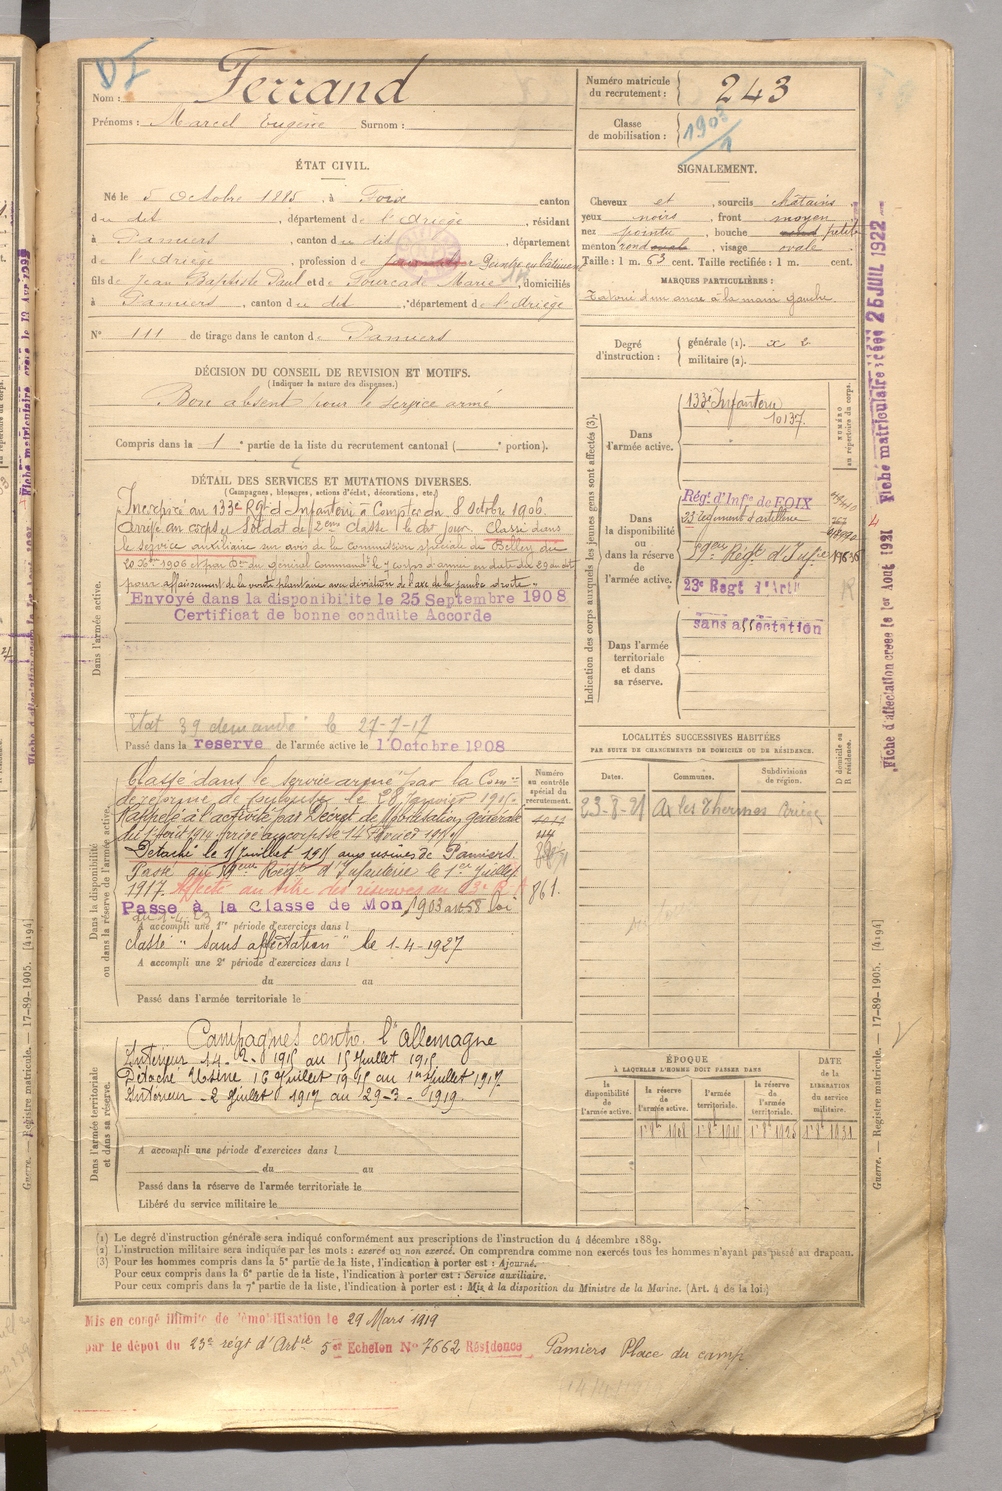 DI
Nom : Ferrand
Prénoms : Marcel Eugène Surnom :
ÉTAT CIVIL.
Né le 5 Octobre 1885, à Foix canton
du dit, département de l'Ariège, résidant
à Pamiers, canton du dit, département
de l'Ariège, profession de Peintre en bâtiment
fils de Jean Baptiste Paul et de Fourcade Marie, domiciliés
à Pamiers, canton du dit, département de l'Ariège
N° 111 de tirage dans le canton de Pamiers
DÉCISION DU CONSEIL DE REVISION ET MOTIFS.
(Indiquer la nature des dispenses.)
Bon absent pour le service armé
Compris dans la 1e partie de la liste du recrutement cantonal ( e portion).
DÉTAIL DES SERVICES ET MUTATIONS DIVERSES.
(Campagnes, blessures, actions d'éclat, décorations, etc.)
Dans l'armée active.
Incorporé au 133e Rgt d'Infanterie à Compter du 8 octobre 1906.
Arrivé au corps et Soldat de 2eme Classe le dit jour. Classé dans
le service auxiliaire sur avis de la Commission spéciale de Belley du
20 Xbre 1906 et par Don du général Commandt le 7 corps d'armée en date du 29 du dit
pour affaissement de la voûte plantaire avec déviation de l'axe de la jambe droite.
Envoyé dans la disponibilité le 25 Septembre 1908
Certificat de bonne conduite Accordé
Etat 39 demandé le 27-7-17
Passé dans la reserve de l'armée active le 1 Octobre 1908
Dans la disponibilité
ou dans la réserve de l'armée active.
Classé dans le service armé par la Com
de réforme de le 28 Janvier 1915.
Rappelé à l'activité par Décret de Mobilisation générale
du 1 Août 1914. Arrivé au corps le 14 Février 1915
Détaché le 15 Juillet 1915 aux usines de Pamiers.
Passé au 59eme Régt d'Infanterie le 1er Juillet
1917. Affecté au titre des réserves au 23e R A
Passé à la Classe de Mon 1903 art 58 loi
du 1-4-23
A accompli une 1re période d'exercices dans l
Classé "Sans affectation" le 1-4-1927
A accompli une 2e période d'exercices dans l
du au
Passé dans l'armée territoriale le
Numéro
au contrôle
spécial du
recrutement.
861.
Dans l'armée territoriale
et dans sa réserve.
Campagnes contre l'Allemagne
Intérieur 14-2-1915 au 15 Juillet 1915
Détaché Usine 16 Juillet 1915 au 1er Juillet 1917
Intérieur 2 Juillet 1917 au 29-3-1919.
A accompli une période d'exercices dans l
du au
Passé dans la réserve de l'armée territoriale le
Libéré du service militaire le
Numéro matricule
du recrutement : 243
Classe
de mobilisation : 1903/1
SIGNALEMENT.
Cheveux et, sourcils châtains
yeux noirs, front moyen
nez pointu, bouche petite
menton rond, visage ovale
Taille : 1 m. 63 cent. Taille rectifiée : 1 m. cent.
MARQUES PARTICULIÈRES :
Tatoué d'un ancre à la main gauche
Degré
d'instruction :
générale (1). x 2
militaire (2).
Indication des corps auxquels les jeunes gens sont affectés (3).
NUMÉRO
au répertoire du corps.
Dans
l'armée active.
133e Infanterie
10137.
Dans
la disponibilité
ou dans
la réserve
de
l'armée active.
Régt d'Infie de FOIX
23 Régiment d'artillerie
59eme Régt d'Infie
23e Regt d'Artie
sans affectation
Dans l'armée
territoriale
et dans
sa réserve.
LOCALITÉS SUCCESSIVES HABITÉES
PAR SUITE DE CHANGEMENTS DE DOMICILE OU DE RÉSIDENCE.
Dates. Communes. Subdivisions
de région.
D domicile ou
R résidence.
23-8-31 Ax les Thermes Ariège
ÉPOQUE
À LAQUELLE L'HOMME DOIT PASSER DANS
DATE
de la
LIBÉRATION
du service
militaire.
la
disponibilité
de
l'armée active.
la réserve
de
l'armée active.
l'armée
territoriale.
la réserve
de
l'armée
territoriale.
(1) Le degré d'instruction générale sera indiqué conformément aux prescriptions de l'instruction du 4 décembre 1889.
(2) L'instruction militaire sera indiquée par les mots : exercé ou non exercé. On comprendra comme non exercés tous les hommes n'ayant pas passé au drapeau.
(3) Pour les hommes compris dans la 5e partie de la liste, l'indication à porter est : Ajourné.
Pour ceux compris dans la 6e partie de la liste, l'indication à porter est : Service auxiliaire.
Pour ceux compris dans la 7e partie de la liste, l'indication à porter est : Mis à la disposition du Ministre de la Marine. (Art. 4 de la loi.)
Mis en congé illimité de démobilisation le 29 Mars 1919
par le dépôt du 23e régt d'Artie 5er Echelon No 7662 Résidence Pamiers Place du camp
Fiche matriculaire créée 26 JUIL 1922
Fiche d'affectation créée le 1er Aout 1921
Guerre. — Registre matricule. — 17-89-1905. [4194]
Guerre. — Registre matricule. — 17-89-1905. [4194]